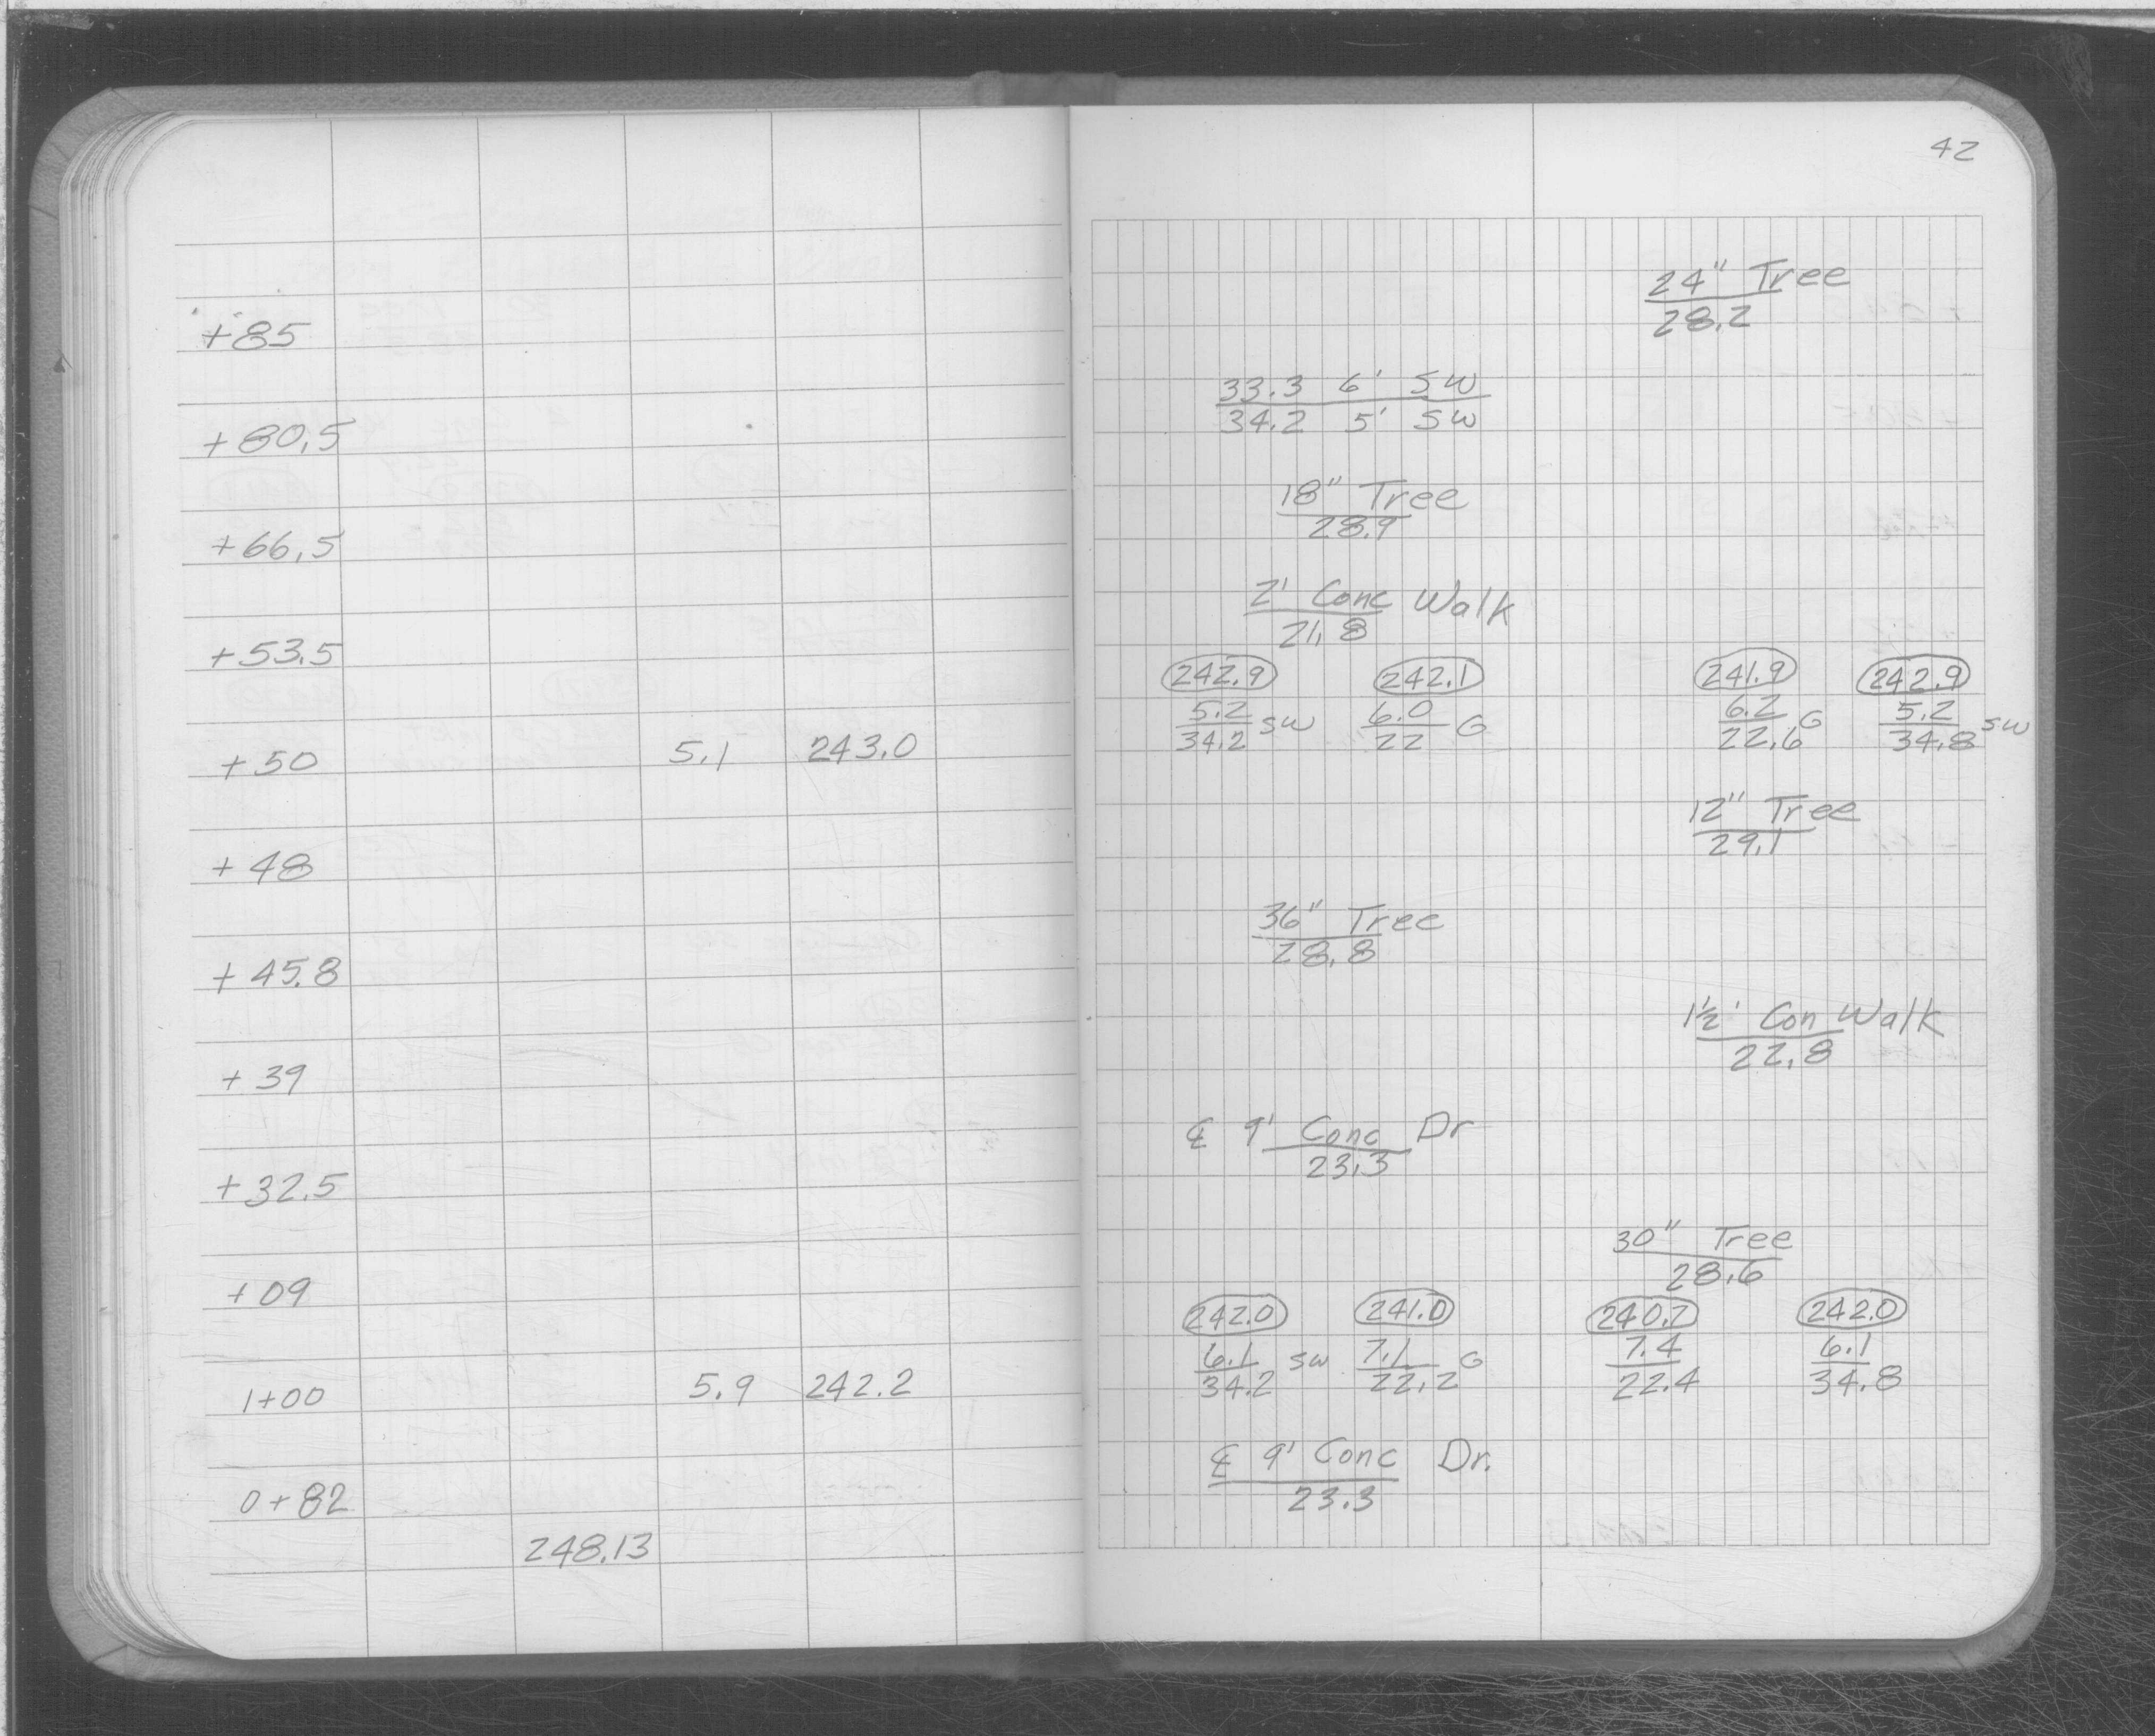 42
24" Tree
+85 28.2
33.3 6' SW
+80.5 34.2 5' SW
18" Tree
+66.5 28.9
2' Conc Walk
+53.5 21.8
242.9 242.1 241.9 242.9
5.2 SW 6.0 G 6.2 G 5.2 SW
+50 5.1 243.0 34.2 22 22.6 34.8
12" Tree
+48 29.1
36" Tree
+45.8 28.8
1½' Con Walk
+39 22.8
℄ 9' Conc Dr
+32.5 23.3
30" Tree
+09 28.6
242.0 241.0 240.7 242.0
6.1 SW 7.1 G 7.4 6.1
1+00 5.9 242.2 34.2 22.2 22.4 34.8
℄ 9' Conc Dr.
0+82 23.3
248.13